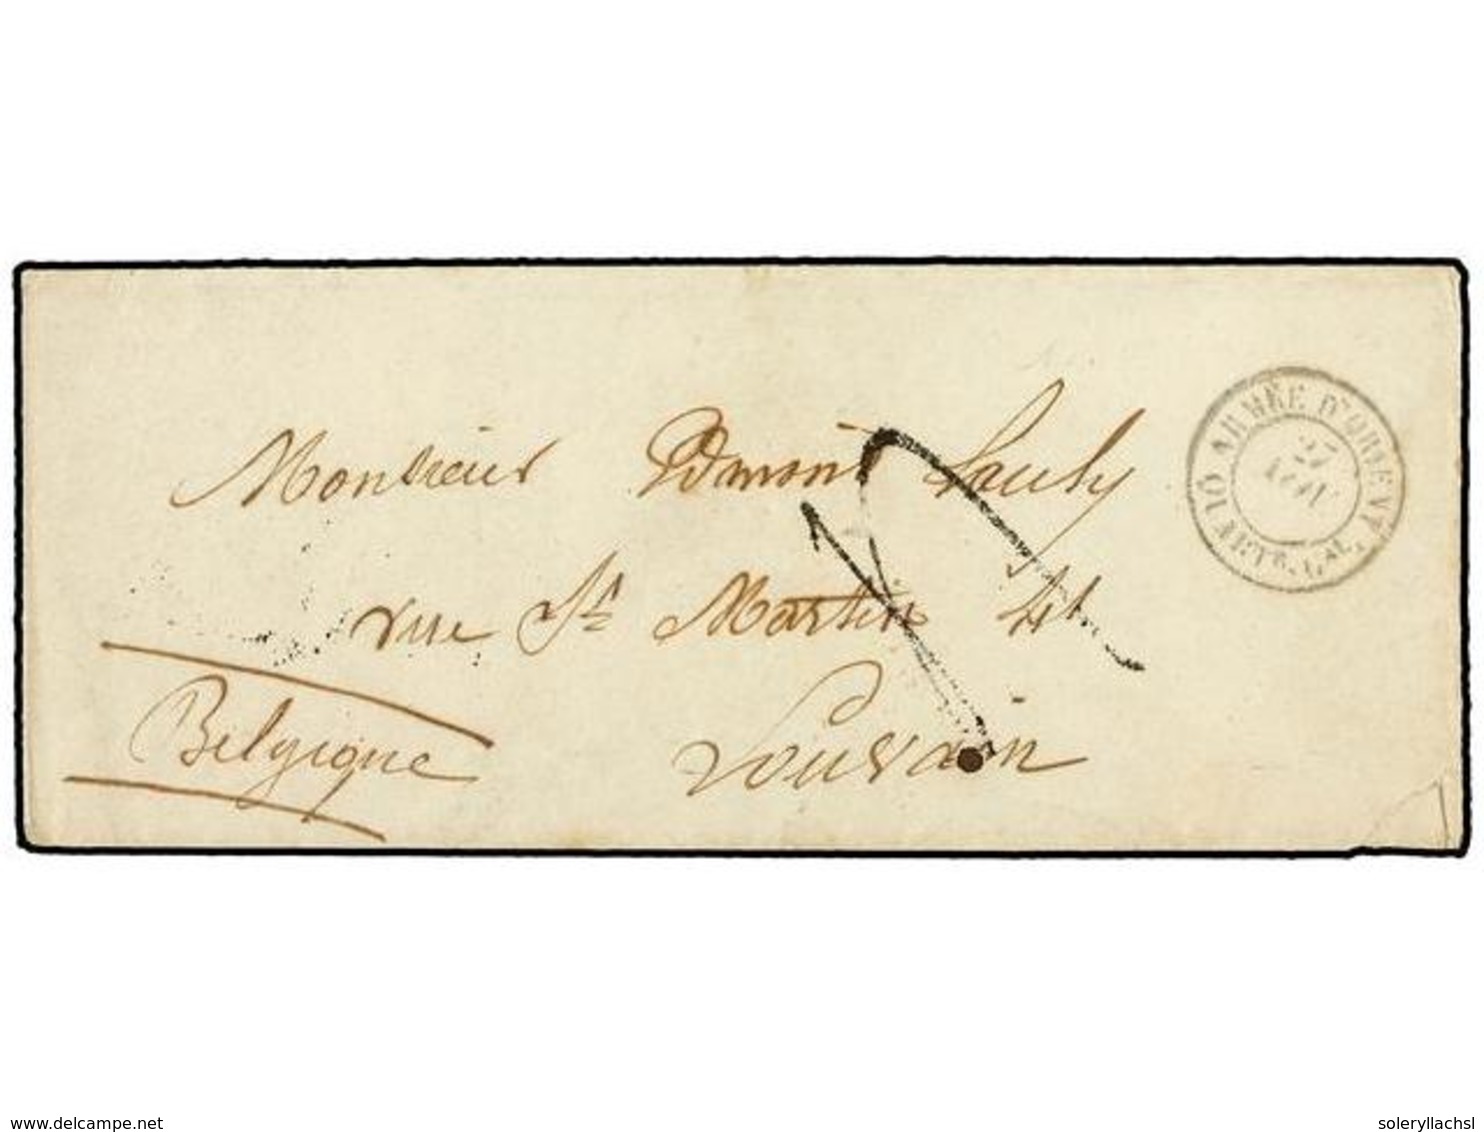 Monsieur Edmont Pauly
rue St Martin 41
Louvain
Belgique
ARMÉE D'ORIENT
27
QUARTR. GAL.
delcampe.net
soleryllachsl